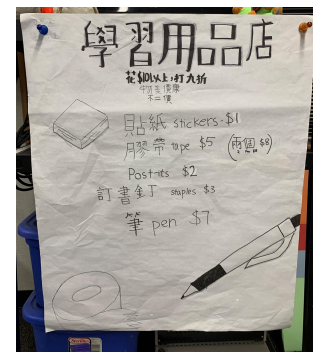 學習用品店
花$10以上,打九折
物美價廉
不二價
貼紙 stickers - $1
膠帶 tape $5 (兩個 $8)
Post-its $2
訂書釘 staples $3
筆 pen $7